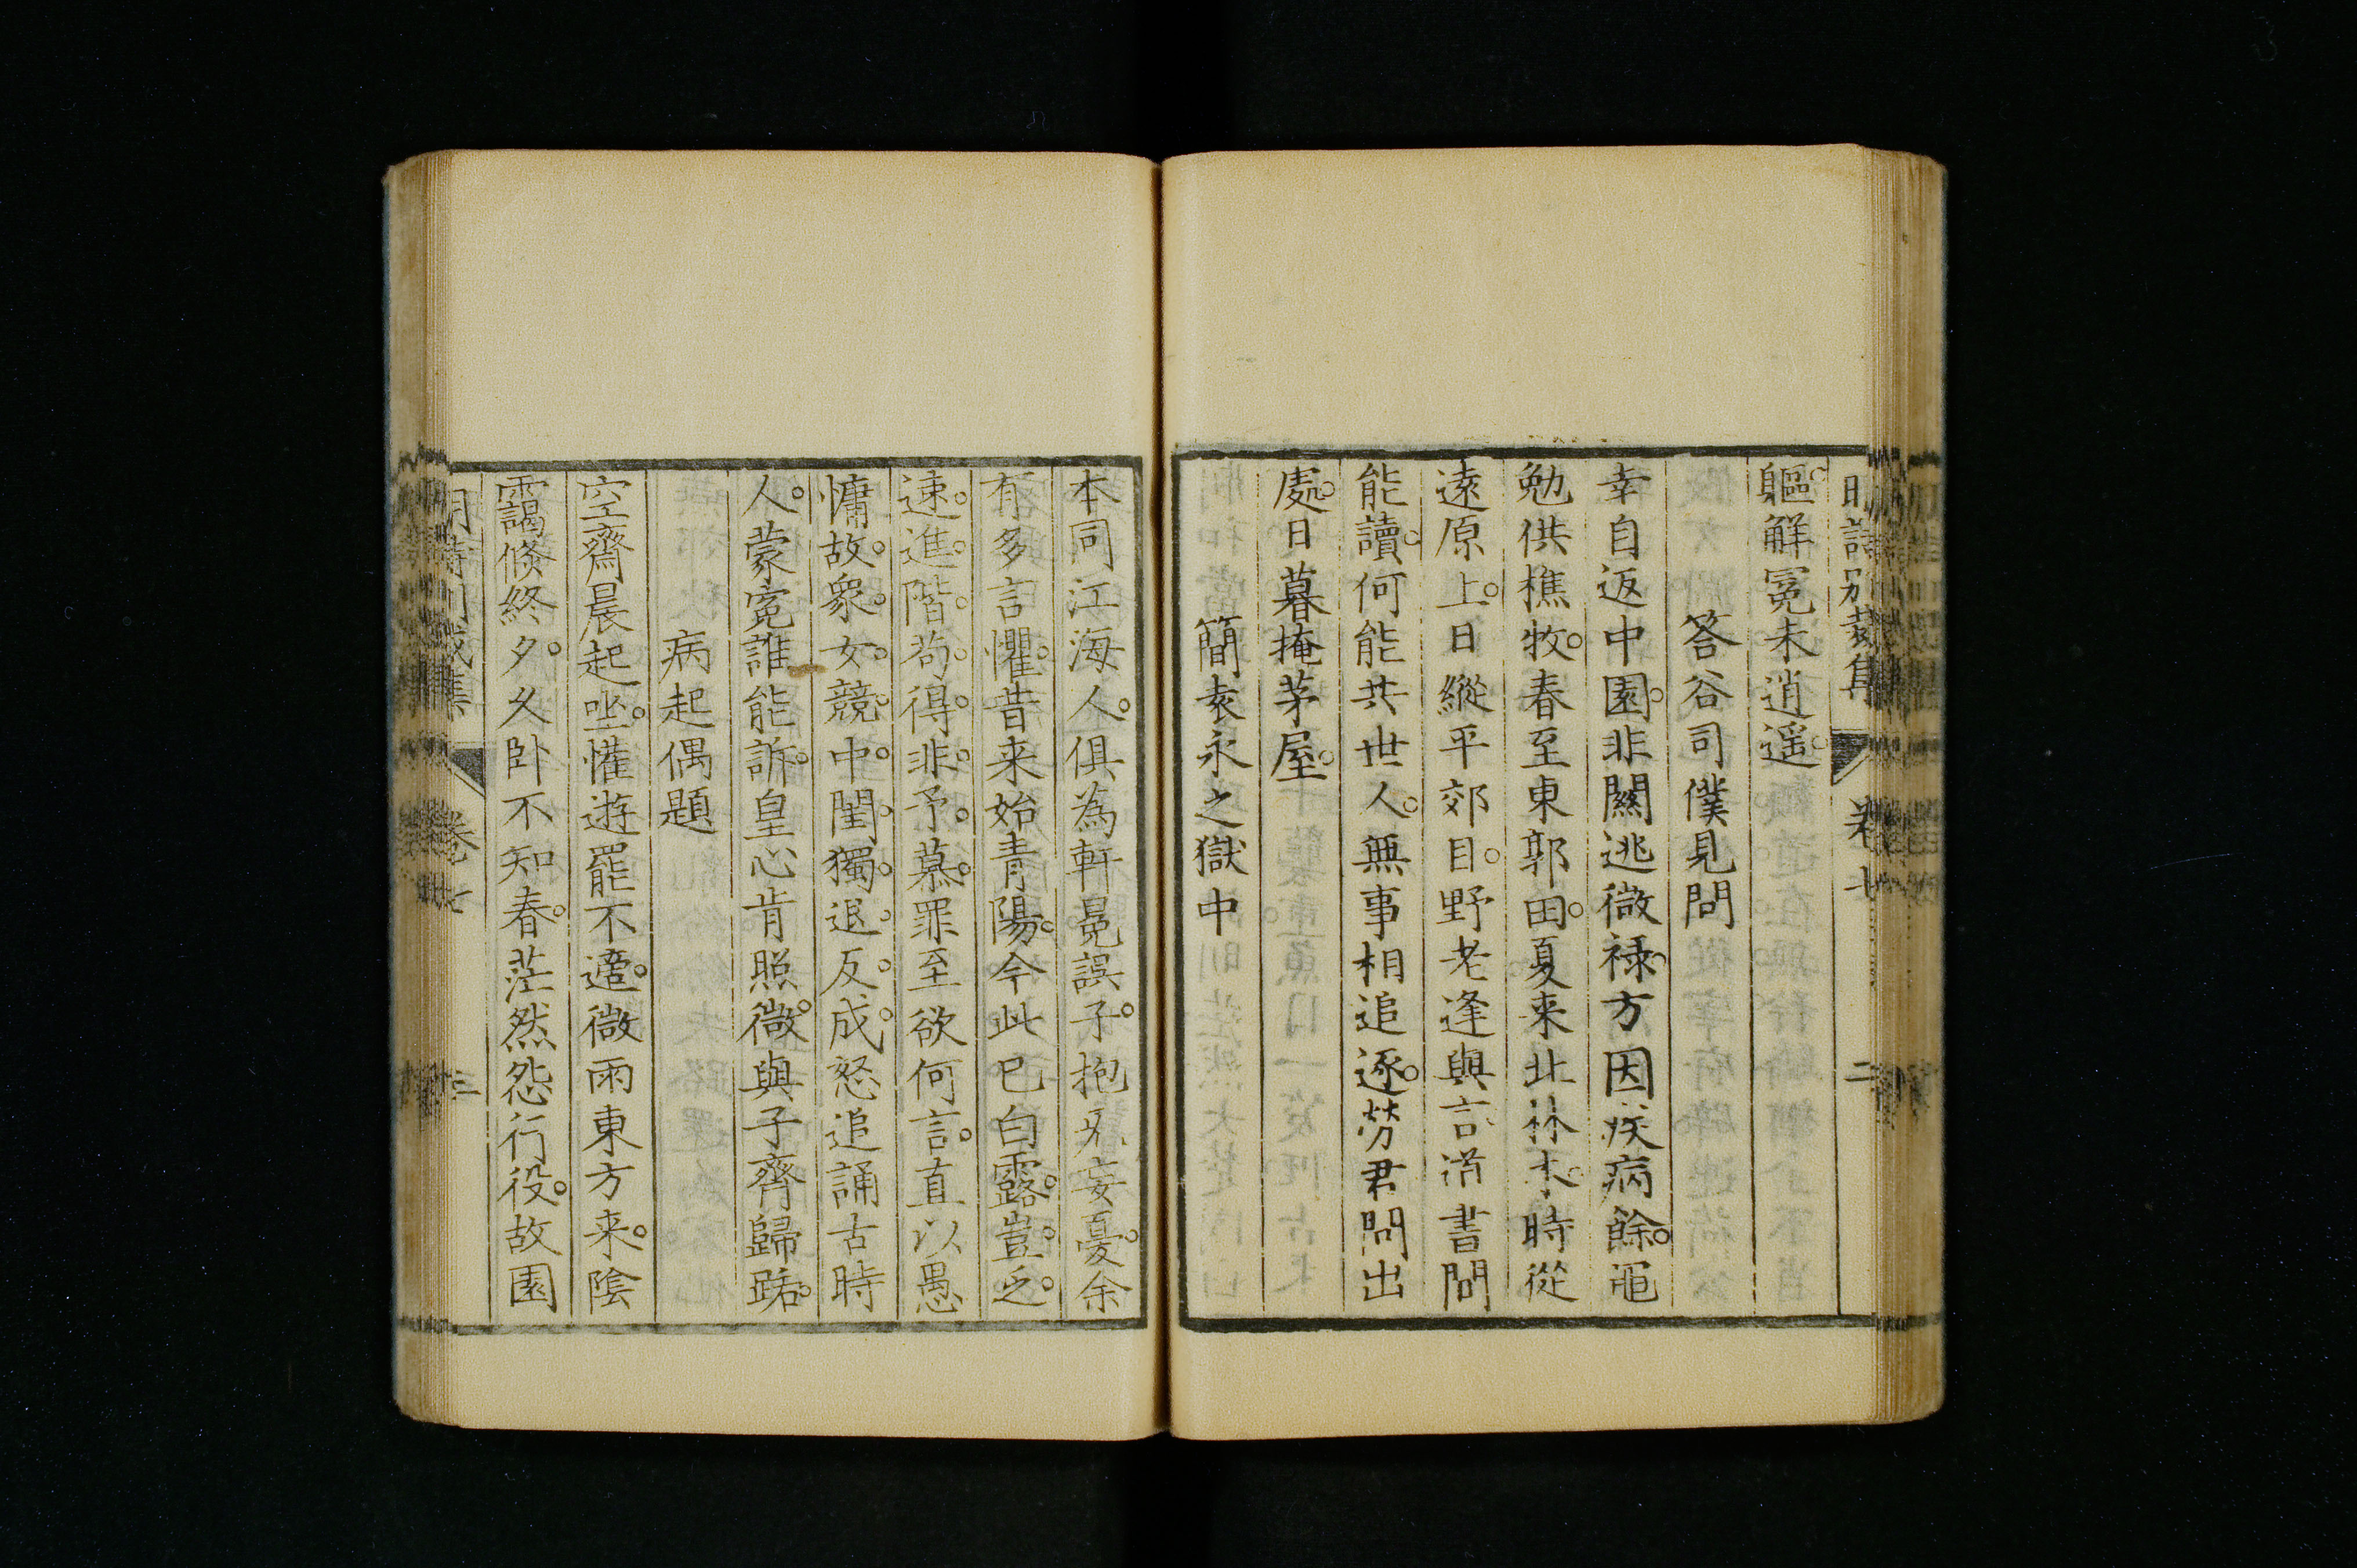 明詩別裁集 卷七 二
軀解冤未逍遥
答谷司僕見問
幸自返中園非關逃微祿方因疾病餘黽
勉供樵牧春至東郭田夏来北林木時從
遠原上日縱平郊目野老逢與言道書問
能讀何能共世人無事相追逐勞君問出
處日暮掩茅屋
簡袁永之獄中
本同江海人俱為軒冕誤子抱无妄憂余
有多言懼昔来始青陽今此已白露豈乏
速進階苟得非予慕罪至欲何言直以愚
慵故衆女競中閨獨退反成怒追誦古時
人蒙寃誰能訴皇心肯照微與子齊歸路
病起偶題
空齋晨起坐懽遊罷不適微雨東方来陰
靄倐終夕久卧不知春茫然怨行役故園
明詩別裁集 卷七 三